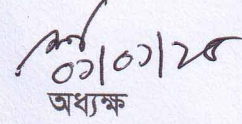 ০১/০১/২৫
অধ্যক্ষ